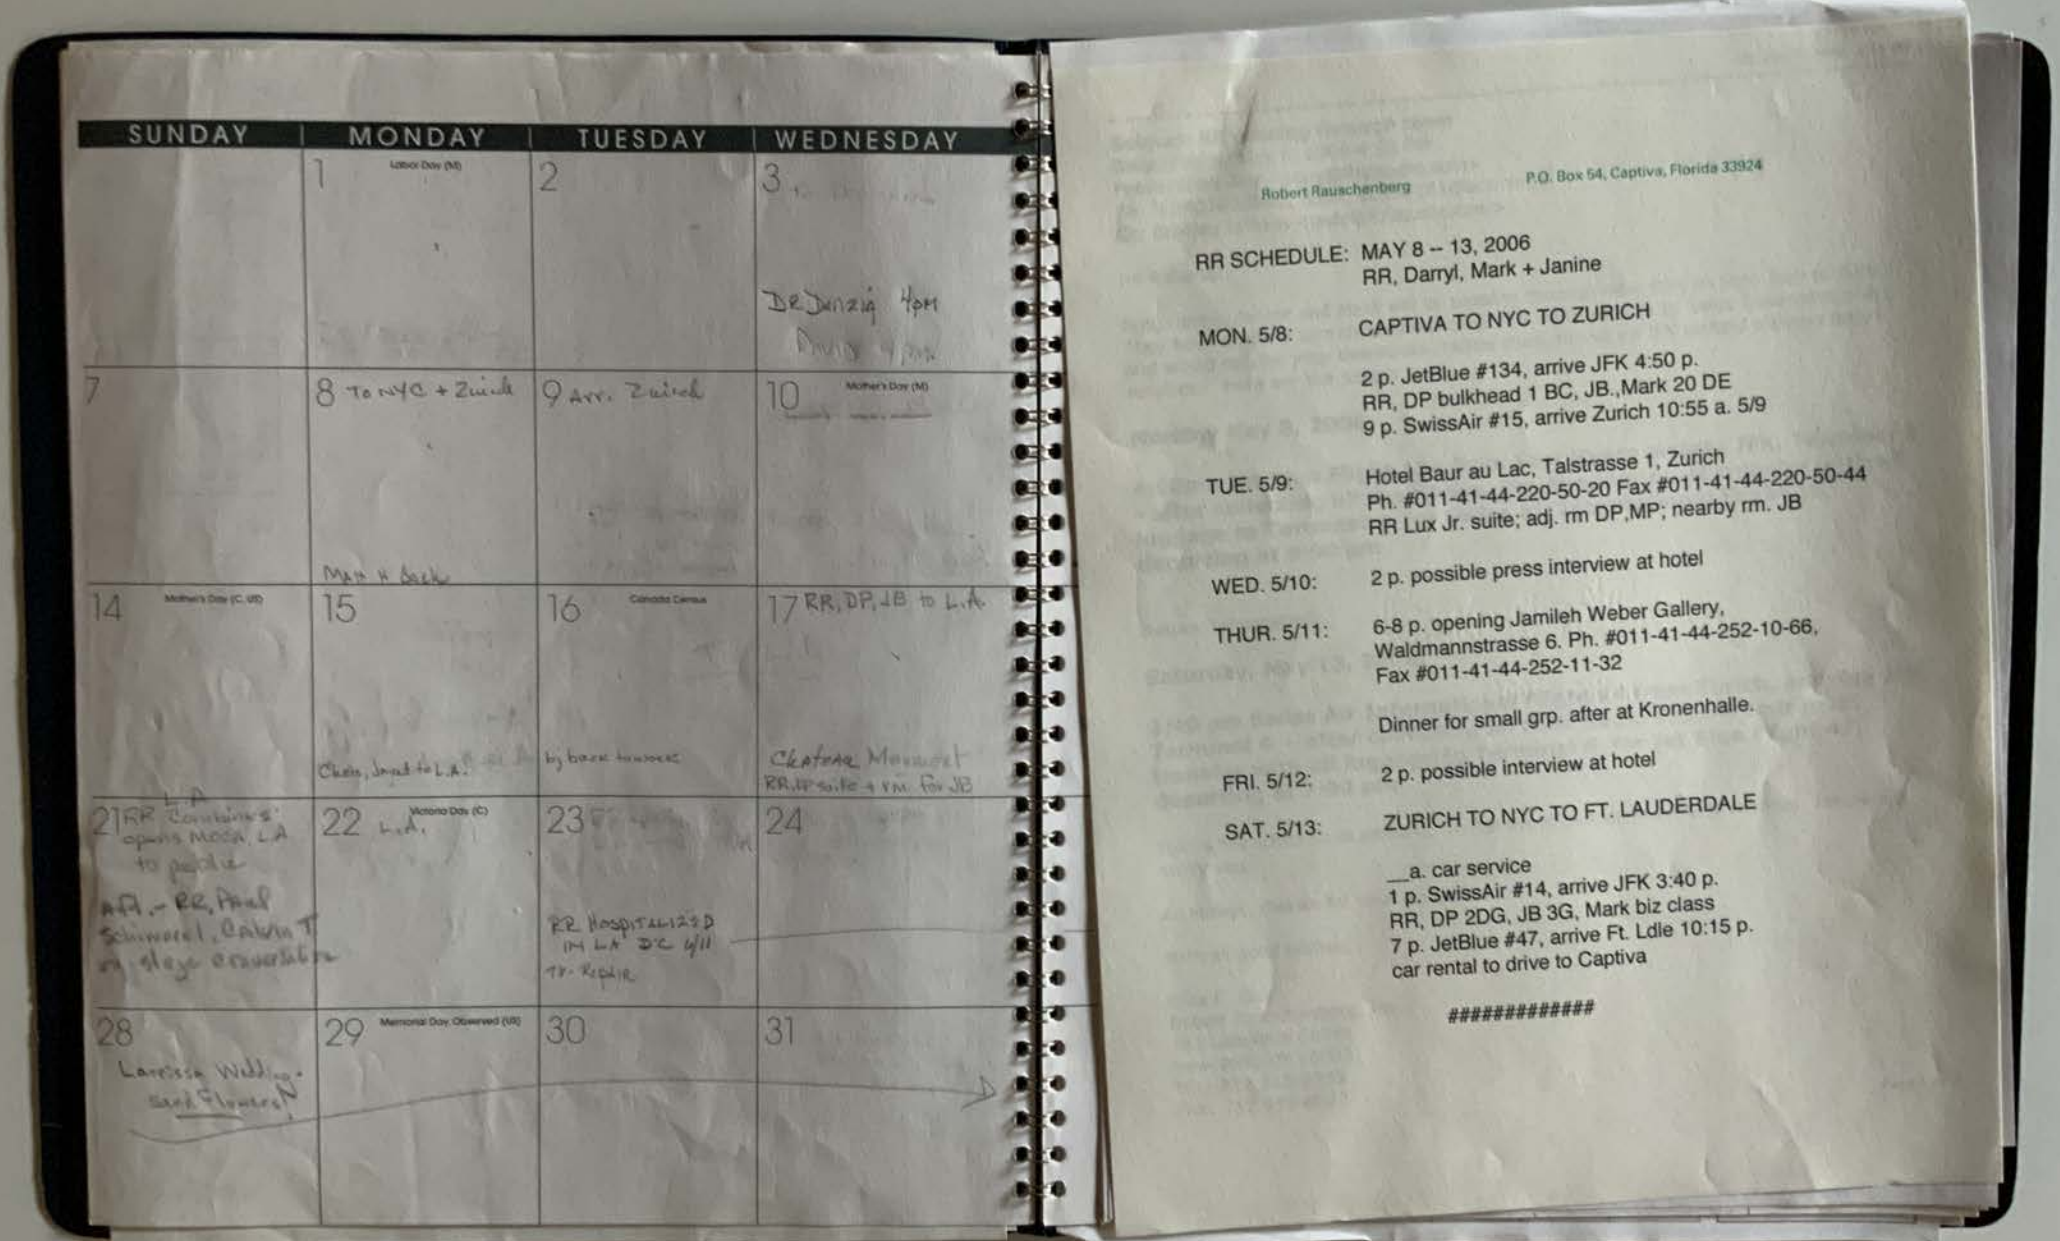 SUNDAY MONDAY TUESDAY WEDNESDAY
1 Labor Day (M)
2
3
DR Danzig 4pm
7
8 To NYC + Zurich
Matt H Back
9 Arr. Zurich
10 Mother's Day (M)
14 Mother's Day (C, US)
15
Chris, to L.A.
16 Canada Census
17 RR, DP, JB to L.A.
Chateau Marmont
RR, DP suite + rm. for JB
L.A.
21 RR Combines
opens MOCA L.A
to public
Aft. - RR, Paul
Schimmel, Calvin T
on stage
22 Victoria Day (C)
L.A.
23
RR HOSPITALIZED
IN LA DC 6/11
TV - Repair
24
28
Wedding -
send Flowers!
29 Memorial Day, Observed (US)
30
31
Robert Rauschenberg P.O. Box 54, Captiva, Florida 33924
RR SCHEDULE: MAY 8 -- 13, 2006
RR, Darryl, Mark + Janine
MON. 5/8: CAPTIVA TO NYC TO ZURICH
2 p. JetBlue #134, arrive JFK 4:50 p.
RR, DP bulkhead 1 BC, JB.,Mark 20 DE
9 p. SwissAir #15, arrive Zurich 10:55 a. 5/9
TUE. 5/9: Hotel Baur au Lac, Talstrasse 1, Zurich
Ph. #011-41-44-220-50-20 Fax #011-41-44-220-50-44
RR Lux Jr. suite; adj. rm DP,MP; nearby rm. JB
WED. 5/10: 2 p. possible press interview at hotel
THUR. 5/11: 6-8 p. opening Jamileh Weber Gallery,
Waldmannstrasse 6. Ph. #011-41-44-252-10-66,
Fax #011-41-44-252-11-32
Dinner for small grp. after at Kronenhalle.
FRI. 5/12: 2 p. possible interview at hotel
SAT. 5/13: ZURICH TO NYC TO FT. LAUDERDALE
__a. car service
1 p. SwissAir #14, arrive JFK 3:40 p.
RR, DP 2DG, JB 3G, Mark biz class
7 p. JetBlue #47, arrive Ft. Ldle 10:15 p.
car rental to drive to Captiva
#############